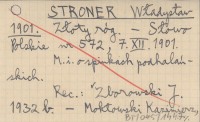 STRONER Władysław
1901. Złoty róg. – Słowo
Polskie nr 572, 7.XII. 1901.
M.i. o śpiewkach podhalań-
skich.
Rec.: Zborowski J.
1932 b. – Mokłowski Kazimierz,